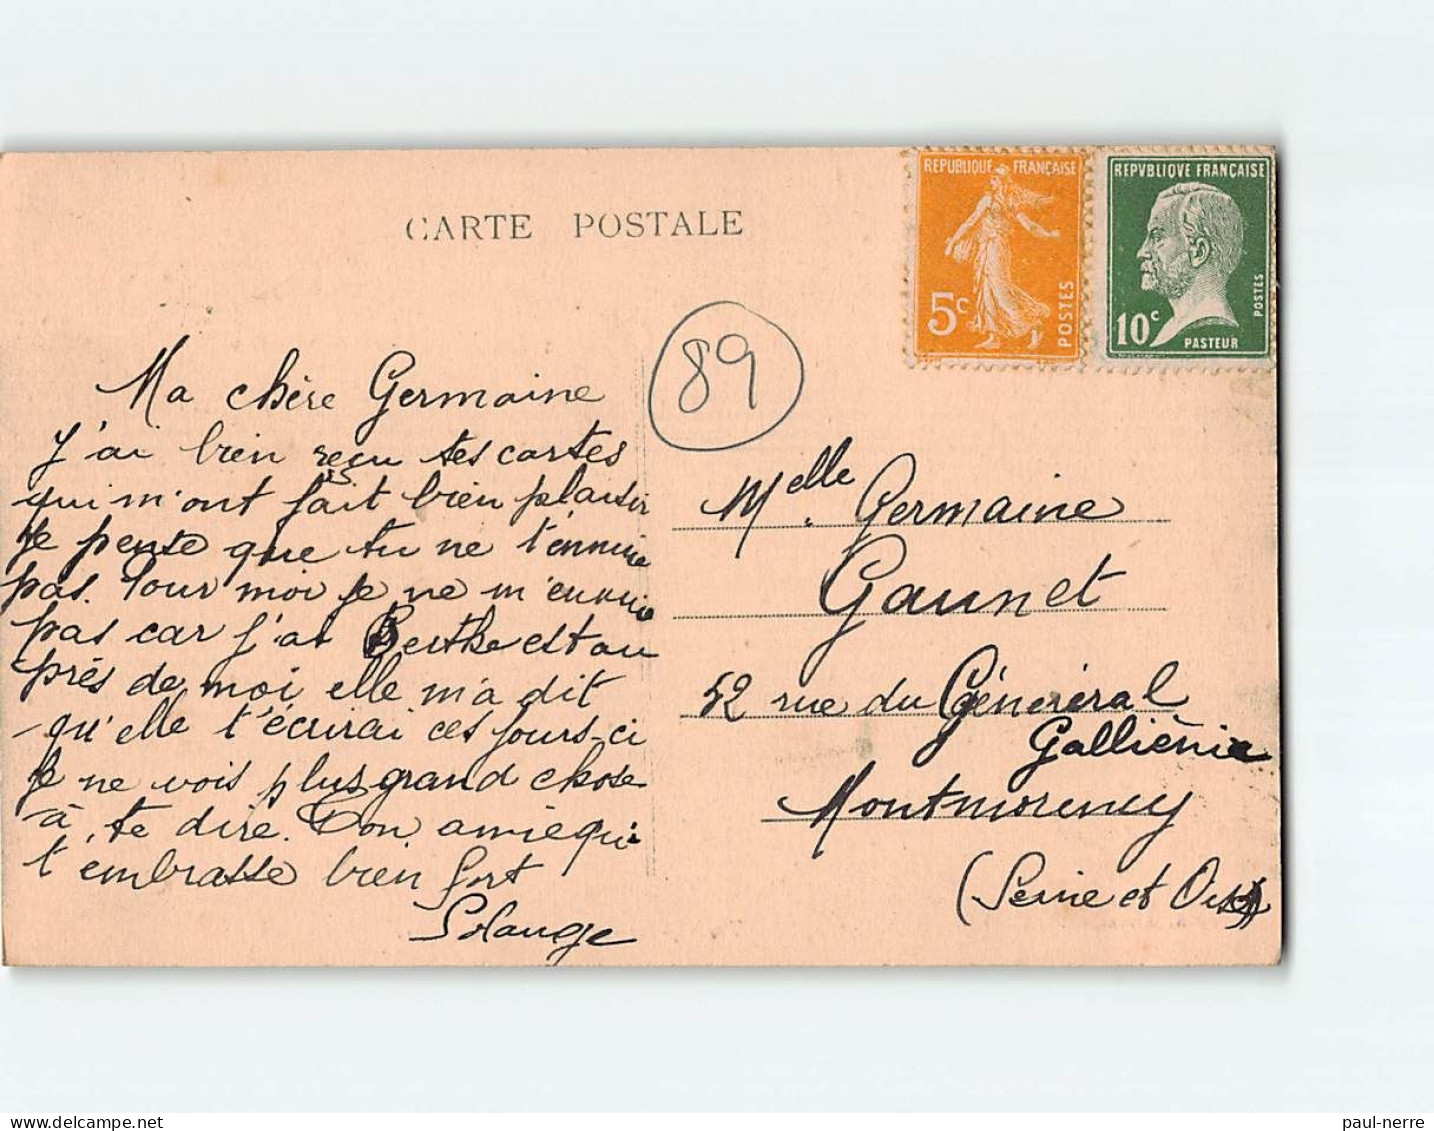 CARTE POSTALE
REPUBLIQUE FRANÇAISE
5c
POSTES
REPVBLIQVE FRANÇAISE
10c
POSTES
PASTEUR
89
Ma chère Germaine
J'ai bien reçu tes cartes
qui m'ont fait bien plaisir
Je pense que tu ne t'ennuie
pas. Pour moi je ne m'ennuie
pas car j'ai Berthe est au
près de moi elle m'a dit
qu'elle t'écrirai ces jours-ci
Je ne vois plus grand chose
à te dire. Ton amie qui
t'embrasse bien fort
Solange
Melle. Germaine
Gaunet
52 rue du Général
Galliénie
Montmorency
(Seine et Oise)
paul-nerre